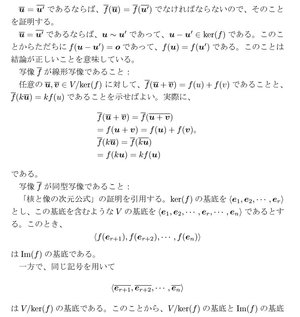 $\overline{\boldsymbol{u}} = \overline{\boldsymbol{u}'}$ であるならば、$\overline{f}(\overline{\boldsymbol{u}}) = \overline{f}(\overline{\boldsymbol{u}'})$ でなければならないので、そのこと
を証明する。
$\overline{\boldsymbol{u}} = \overline{\boldsymbol{u}'}$ であるならば、$\boldsymbol{u} \sim \boldsymbol{u}'$ であって、$\boldsymbol{u} - \boldsymbol{u}' \in \ker(f)$ である。このこ
とからただちに $f(\boldsymbol{u} - \boldsymbol{u}') = \boldsymbol{o}$ であって、$f(\boldsymbol{u}) = f(\boldsymbol{u}')$ である。このことは
結論が正しいことを意味している。
写像 $\overline{f}$ が線形写像であること：
任意の $\overline{\boldsymbol{u}}, \overline{\boldsymbol{v}} \in V/\ker(f)$ に対して、$\overline{f}(\overline{\boldsymbol{u}} + \overline{\boldsymbol{v}}) = f(u) + f(v)$ であることと、
$\overline{f}(k\overline{\boldsymbol{u}}) = kf(u)$ であることを示せばよい。実際に、
$\overline{f}(\overline{\boldsymbol{u}} + \overline{\boldsymbol{v}}) = \overline{f}(\overline{\boldsymbol{u} + \boldsymbol{v}})$
$= f(\boldsymbol{u} + \boldsymbol{v}) = f(\boldsymbol{u}) + f(\boldsymbol{v}),$
$\overline{f}(k\overline{\boldsymbol{u}}) = \overline{f}(\overline{k\boldsymbol{u}})$
$= f(k\boldsymbol{u}) = kf(\boldsymbol{u})$
である。
写像 $\overline{f}$ が同型写像であること：
「核と像の次元公式」の証明を引用する。$\ker(f)$ の基底を $\langle \boldsymbol{e}_1, \boldsymbol{e}_2, \cdots, \boldsymbol{e}_r \rangle$
とし、この基底を含むような $V$ の基底を $\langle \boldsymbol{e}_1, \boldsymbol{e}_2, \cdots, \boldsymbol{e}_r, \cdots, \boldsymbol{e}_n \rangle$ であるとす
る。このとき、
$\langle f(\boldsymbol{e}_{r+1}), f(\boldsymbol{e}_{r+2}), \cdots, f(\boldsymbol{e}_n) \rangle$
は $\mathrm{Im}(f)$ の基底である。
一方で、同じ記号を用いて
$\langle \overline{\boldsymbol{e}_{r+1}}, \overline{\boldsymbol{e}_{r+2}}, \cdots, \overline{\boldsymbol{e}_n} \rangle$
は $V/\ker(f)$ の基底である。このことから、$V/\ker(f)$ の基底と $\mathrm{Im}(f)$ の基底